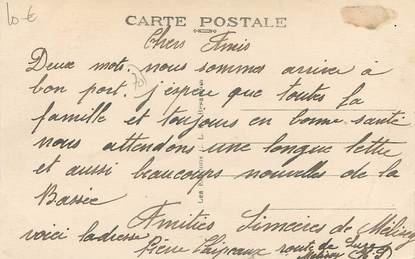 10 €
CARTE POSTALE
Chers Amis
Deux mots. nous sommes arriver à
bon port. j'espère que toutes la
famille et toujours en bonne santé
nous attendons une longue lettre
et aussi beaucoups nouvelles de la
Bassée
Amitiés Sincères de Mélisey
voici ladresse
Pierre route de Lure
Melisey